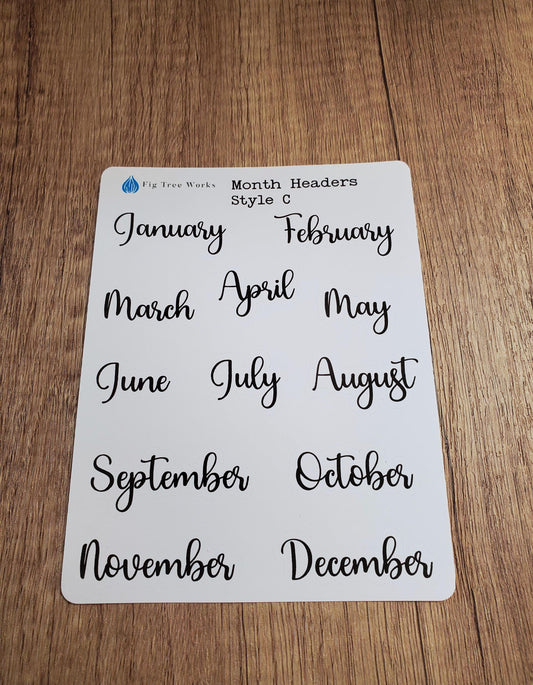 Fig Tree Works
Month Headers
Style C
January February
March April May
June July August
September October
November December